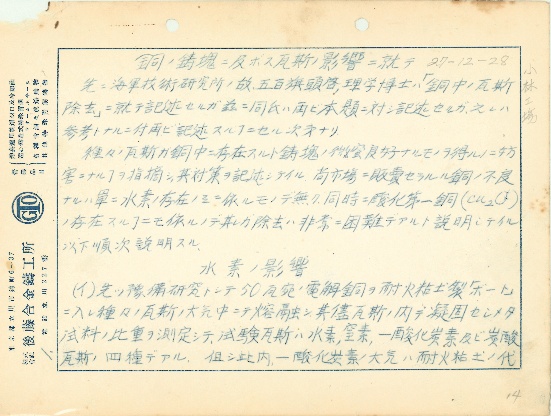 銅ノ鋳塊ニ及ホス瓦斯ノ影響ニ就テ 27-12-28
先ニ海軍技術研究所ノ故、五百旗頭啓、理学博士ハ「銅中ノ瓦斯
除去」ニ就テ記述セルガ茲ニ同氏ハ再ビ本題ニ対シ記述セルガ、之レハ
参考トナル一件再ビ記述スルコトニセル次第ナリ
種々ノ瓦斯ガ銅中ニ存在スルト鋳塊ノ 良好ナルモノヲ得ルノニ妨
害ニナルコトヲ指摘シ其対策ヲ記述シテイル 尚市場ニ販売セラルル銅ノ不良
ナルハ単ニ水素ノ存在ノミニ依ルモノデ無ク、同時ニ酸化第一銅(Cu₂O)
ノ存在スルコトニモ依ルノデ其レガ除去ハ非常ニ困難デアルト説明シテイル
以下順次説明スル.
水素ノ影響
(イ)先ヅ豫備研究トシテ50瓦宛ノ電解銅ヲ耐火粘土製「ボート」
ニ入レ種々ノ瓦斯ノ大気中ニテ熔融シ其儘瓦斯ノ内デ凝固セシメタ
試料ノ比重ヲ測定シテ、試験瓦斯ハ水素、窒素、一酸化炭素及ビ炭酸
瓦斯ノ四種デアル. 但シ此内、一酸化炭素ノ大気ハ耐火粘土ノ代
小林工場
後藤合金鋳工所
14